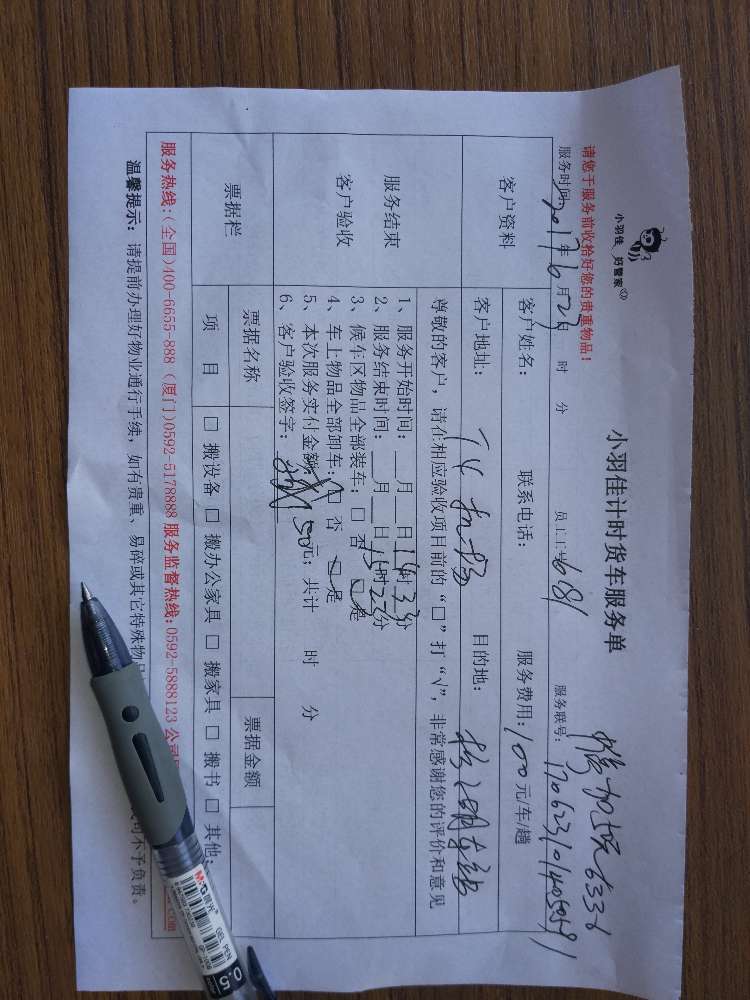 小羽佳 好管家
小羽佳计时货车服务单
请您于服务前收拾好您的贵重物品!
服务时间: 2017年6月23日 时 分 员工工号 681 服务联号: 1706231014050591
客户资料
客户姓名: 联系电话: 服务费用: 100元/车/趟
客户地址: 目的地:
服务结束
客户验收
尊敬的客户,请在相应验收项目前的“□”打“√”,非常感谢您的评价和意见
1、服务开始时间: __月__日14时23分
2、服务结束时间: __月__日15时23分
3、候车区物品全部装车: □ 否 □ 是
4、车上物品全部卸车: □ 否 □ 是
5、本次服务实付金额: 150元; 共计 时 分
6、客户验收签字:
票据栏
票据名称 票据金额
项 目 □ 搬设备 □ 搬办公家具 □ 搬家具 □ 搬书 □ 其他:
服务热线:(全国)400-6655-888 (厦门)0592-5178888 服务监督热线: 0592-5888123 公司
温馨提示: 请提前办理好物业通行手续, 如有贵重、易碎或其它特殊物品
可不予负责。
M&G 晨光 GEL PEN
0.5